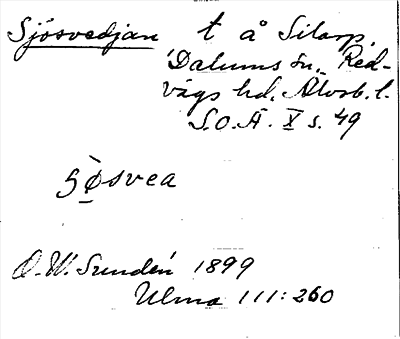 Sjösvedjan t å Silarp,
Dalums sn., Red-
vägs hd. Älvsb. l.
S.O.Ä. X s. 49
sø̀svea
O.W. Sundén 1899
Ulma 111:260